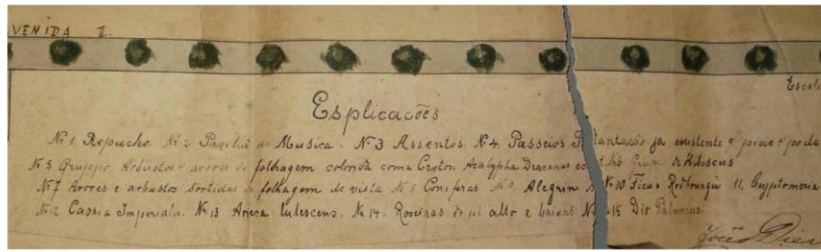 VENIDA I.
Escala
Esplicacões
Nº 1 Repucho. Nº 2 Pavilhã de Musica. Nº 3 Assentos. Nº 4. Passeios Plantacão ja existente e
Nº 5 Grupos Arbustos e arvores de folhagem colorida como Croton Acalypha Dracenas de Hibiscus
Nº 7 Arvores e arbustos Sortidas de folhagem de vista Nº 8 Coniferas. Nº 9 Alegrim Nº 10 Ficus 11. Cryptomeria
Nº 12 Cassia Imperialis. Nº 13 Areca lutescens. Nº 14. Roseiras de pé alto e baixas Nº 15 Dir Palmeras
João Dier